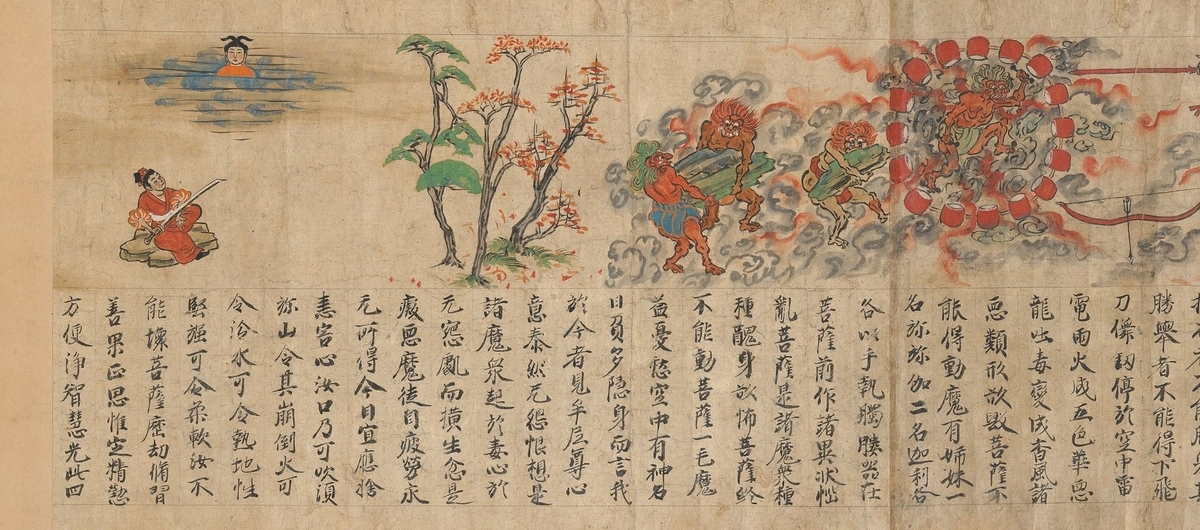 勝舉者不能得下飛
刀儛釰停於空中雷
電雨火成五色華惡
龍吐毒變成香風諸
惡類形欲毀菩薩不
能得動魔有姉妹一
名弥弥伽二名迦利各
各以手執髑髏器在
菩薩前作諸異狀惱
亂菩薩是諸魔衆種
種醜身欲怖菩薩終
不能動菩薩一毛魔
益憂愁空中有神名
曰負多隱身而言我
於今者見牟尼尊心
意泰然无怨恨想是
諸魔衆起於毒心於
无怨處而横生忿是
癡惡魔徒自疲勞永
无所得今日宜應捨
恚害心汝口乃可吹須
弥山令其崩倒火可
令冷水可令熱地性
堅强可令柔軟汝不
能壞菩薩歷劫脩習
善果正思惟定精懃
方便淨智慧光此四